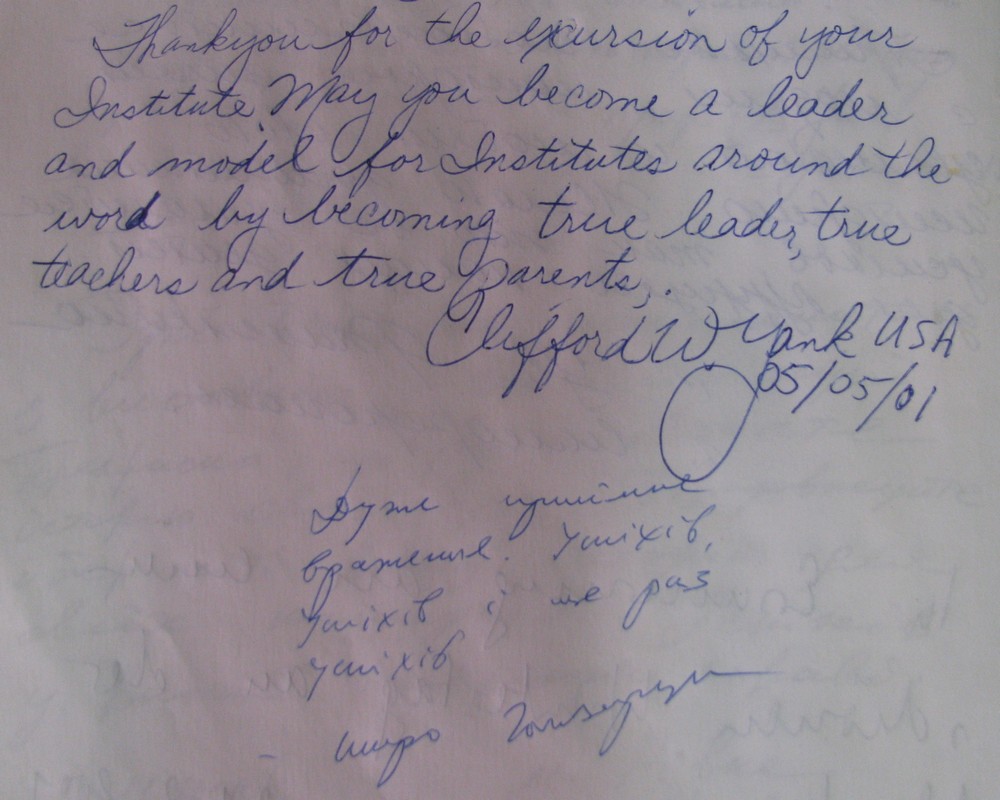 Thankyou for the excursion of your
Institute. May you become a leader
and model for Institutes around the
word by becoming true leader, true
teachers and true parents,.
Clifford W Yank USA
05/05/01
Дуже приємне
враження. Успіхів,
Успіхів і ще раз
успіхів
щиро